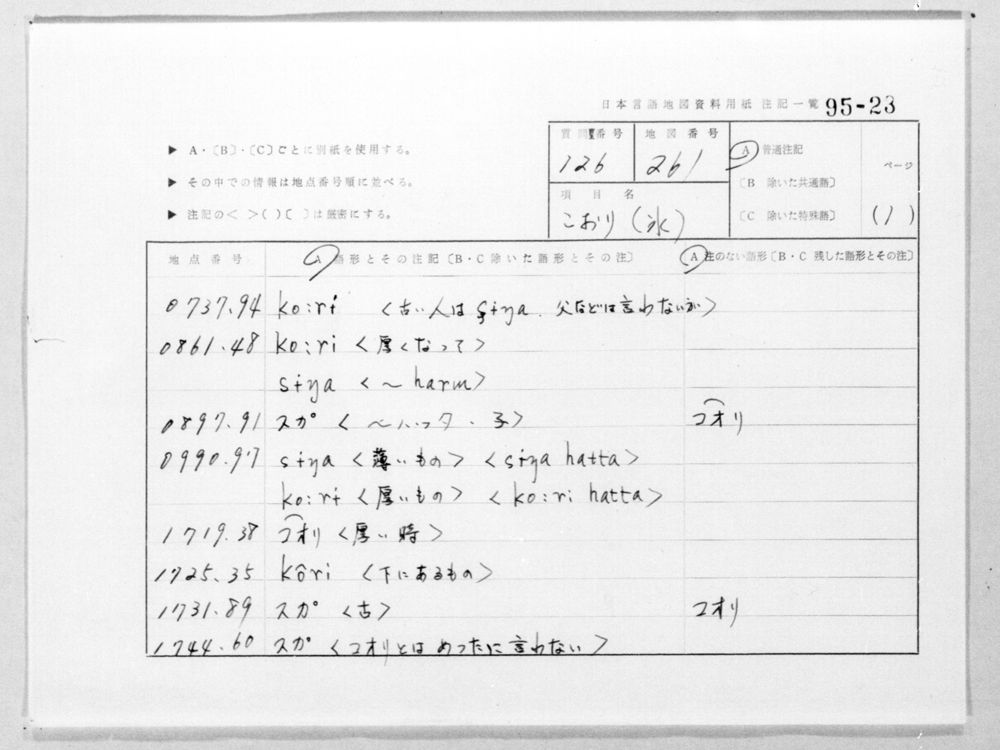 日本言語地図資料用紙 注記一覧 95-23
▶ A・〔B〕・〔C〕ごとに別紙を使用する。
▶ その中での情報は地点番号順に並べる。
▶ 注記の< >( )〔 〕は厳密にする。
質問番号 地図番号
126 261
項目名
こおり(氷)
A 普通注記
〔B 除いた共通語〕
〔C 除いた特殊語〕
ページ
(1)
地点番号 A 語形とその注記〔B・C除いた語形とその注〕 A 注のない語形〔B・C 残した語形とその注〕
0737.94 ko:rï <古い人は sïŋa. 父などは言わないが>
0861.48 ko:ri <厚くなって>
sïŋa <～ harɯ>
0897.91 スカ゚ <～ハッタ・子> コオリ
0990.97 sïŋa <薄いもの> <sïŋa hatta>
ko:rï <厚いもの> <ko:ri hatta>
1719.38 コオリ <厚い時>
1725.35 kôri <下にあるもの>
1731.89 スカ゚ <古> コオリ
1744.60 スカ゚ <コオリとはめったに言わない>